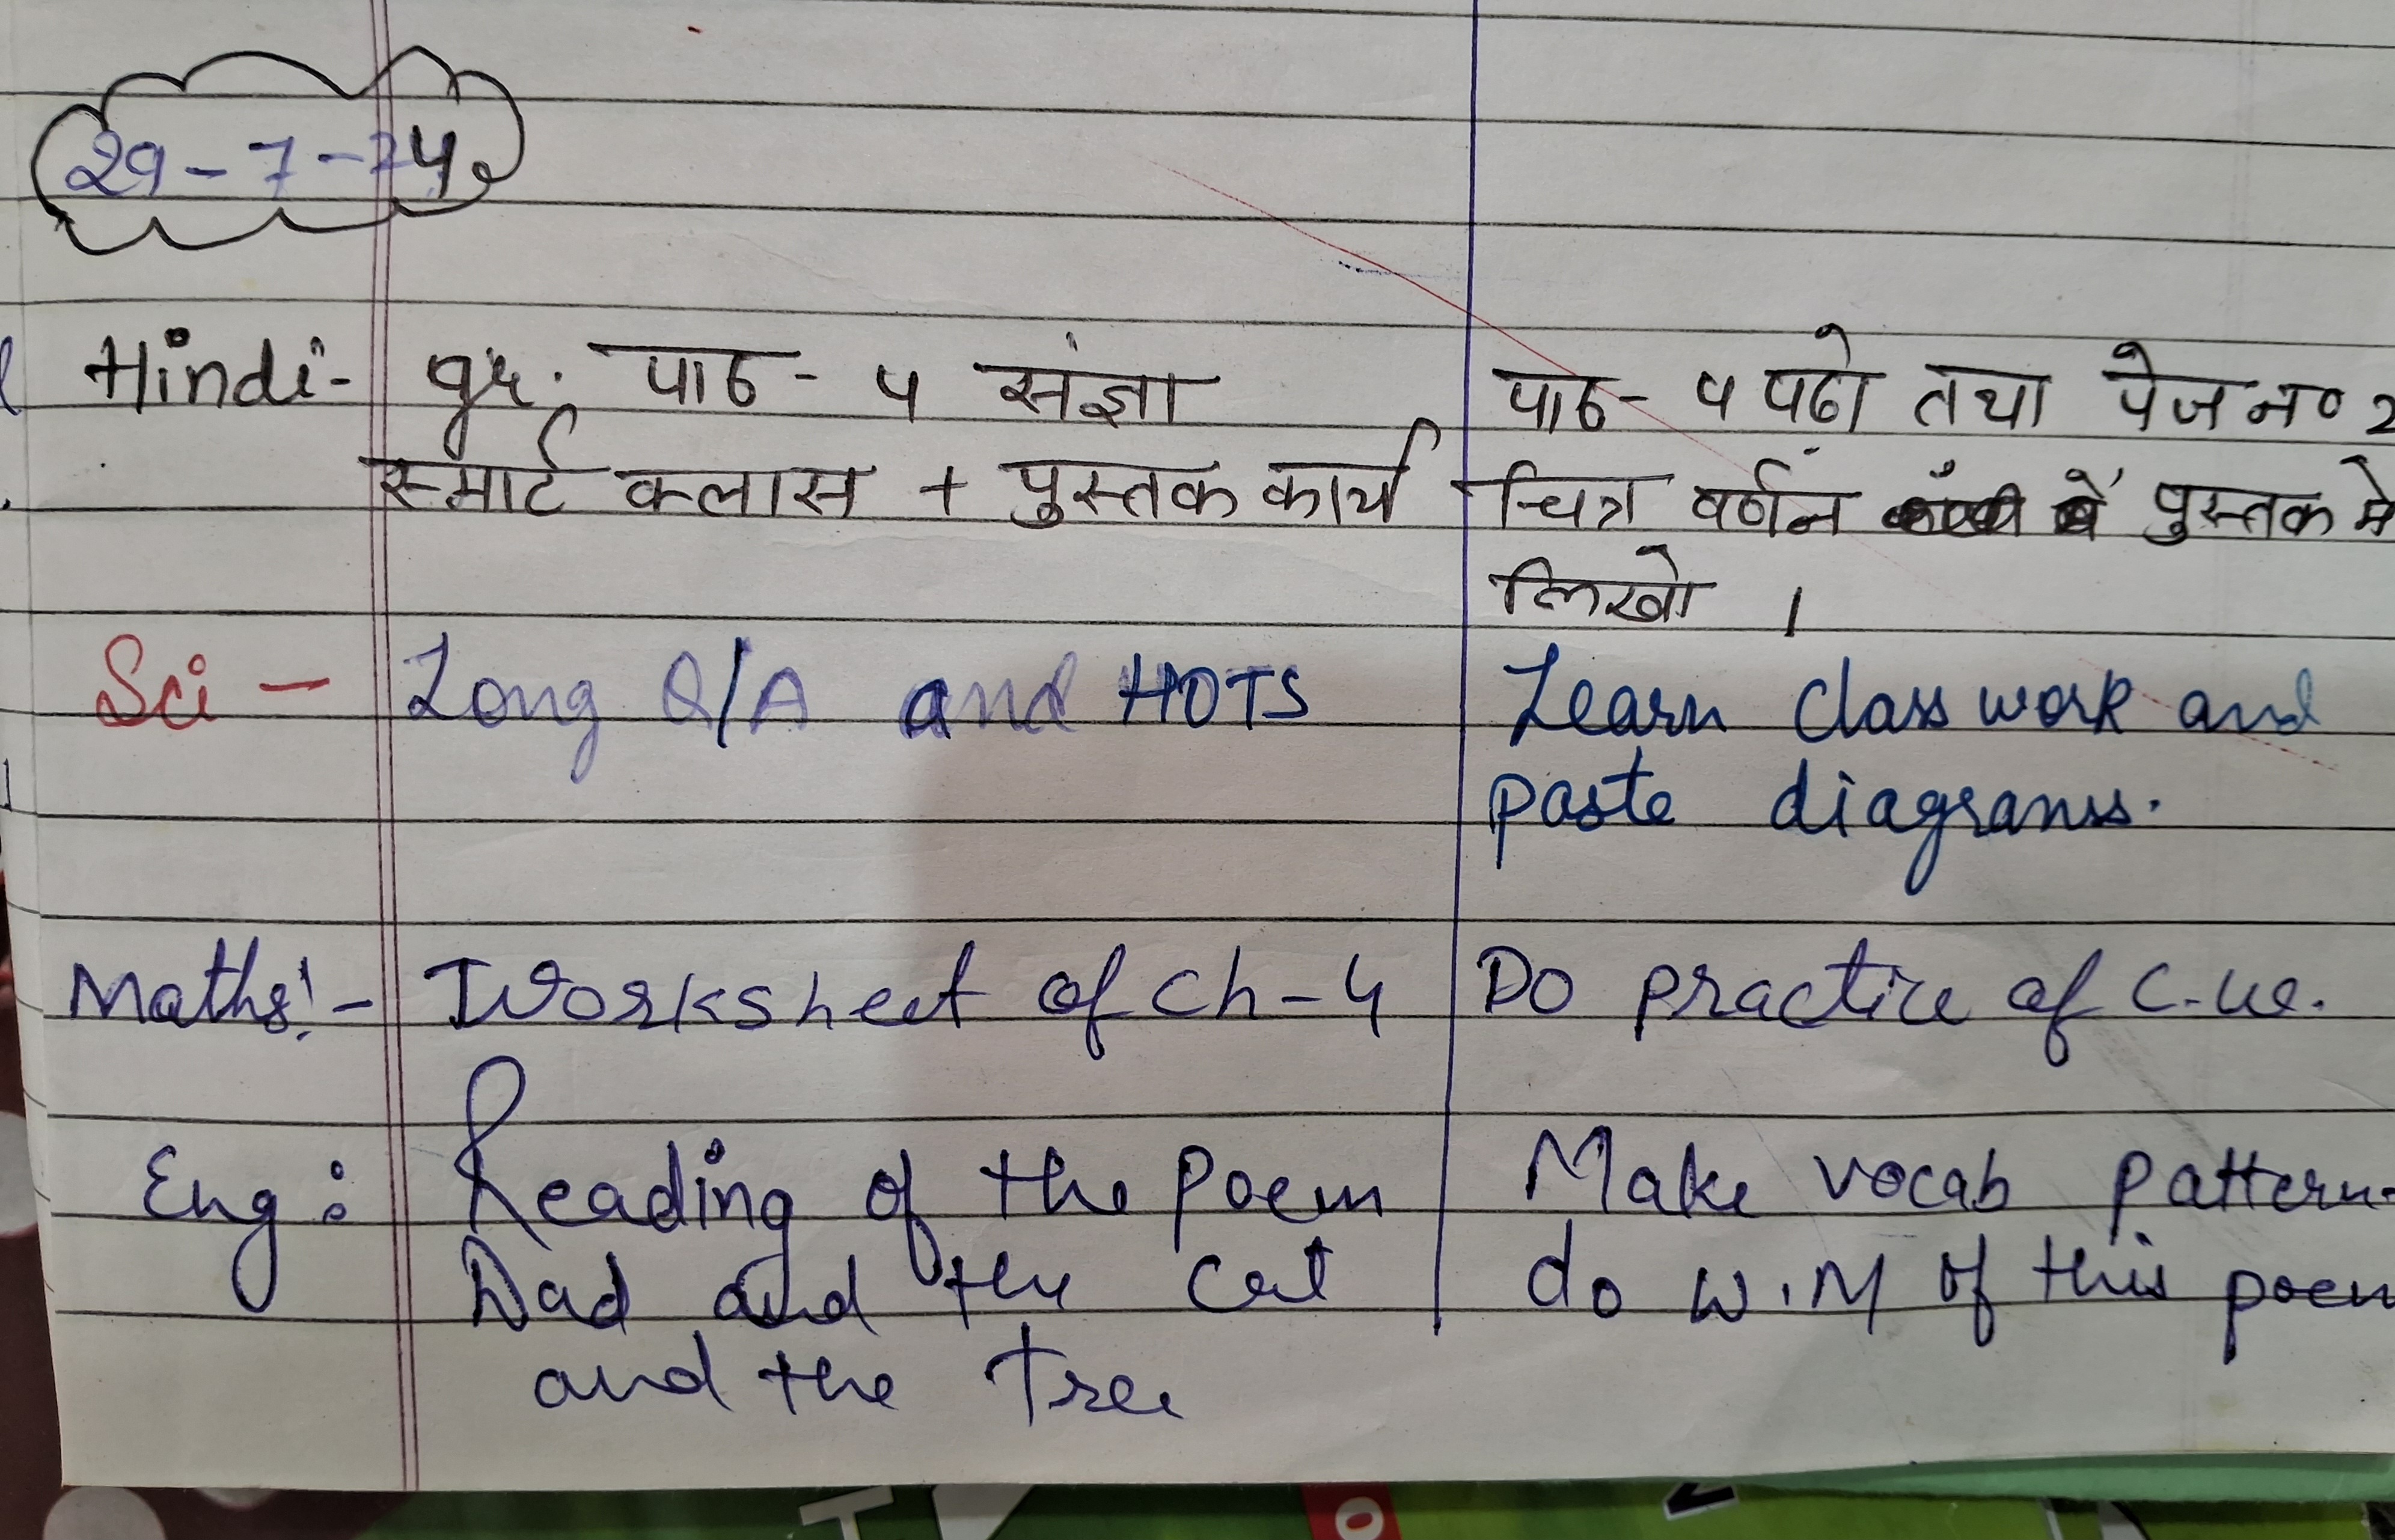 29-7-24
Hindi- gr. पाठ- 4 संज्ञा
स्मार्ट क्लास + पुस्तक कार्य
पाठ- 4 पढो तथा पेज न० 2
चित्र वर्णन पुस्तक मे
लिखो ।
Sci - Long Q/A and HOTS
Learn class work and
paste diagrams.
Maths:- Worksheet of Ch-4
Do practice of C.W.
Eng: Reading of the Poem
Dad and the Cat
and the Tree
Make vocab pattern-
do W.M of this poem